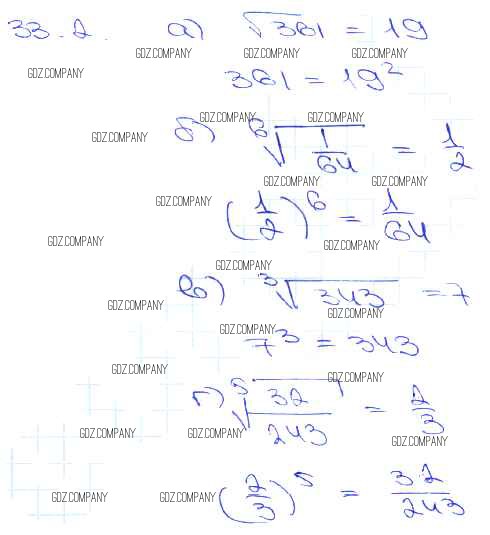 33.2. а) √361 = 19
GDZ.COMPANY GDZ.COMPANY GDZ.COMPANY
361 = 19²
GDZ.COMPANY GDZ.COMPANY
б) ⁶√(1/64) = 1/2
GDZ.COMPANY
GDZ.COMPANY GDZ.COMPANY
GDZ.COMPANY
(1/2)⁶ = 1/64
GDZ.COMPANY GDZ.COMPANY
GDZ.COMPANY
в) ³√343 = 7
GDZ.COMPANY GDZ.COMPANY
GDZ.COMPANY
7³ = 343
GDZ.COMPANY GDZ.COMPANY
г) ⁵√(32/243) = 2/3
GDZ.COMPANY GDZ.COMPANY GDZ.COMPANY
(2/3)⁵ = 32/243
GDZ.COMPANY GDZ.COMPANY GDZ.COMPANY